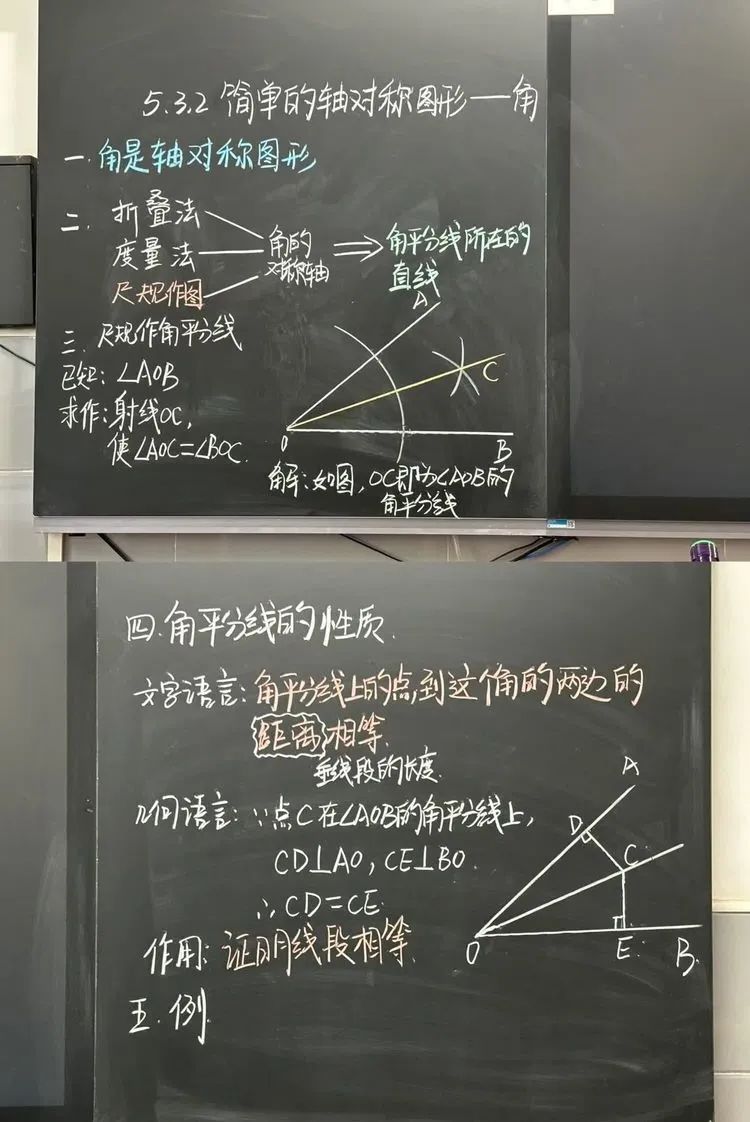 5.3.2 简单的轴对称图形—角
一.角是轴对称图形
二.
折叠法
度量法
尺规作图
角的
对称轴
角平分线所在的
直线
三.尺规作角平分线
已知:∠AOB
求作:射线OC,
使∠AOC=∠BOC.
A
C
O
B
解:如图,OC即为∠AOB的
角平分线
四.角平分线的性质.
文字语言:角平分线上的点到这个角的两边的
距离相等.
垂线段的长度.
几何语言:∵点C在∠AOB的角平分线上,
CD⊥AO,CE⊥BO.
∴CD=CE.
作用:证明线段相等.
A
D
C
O
E.
B.
五.例.